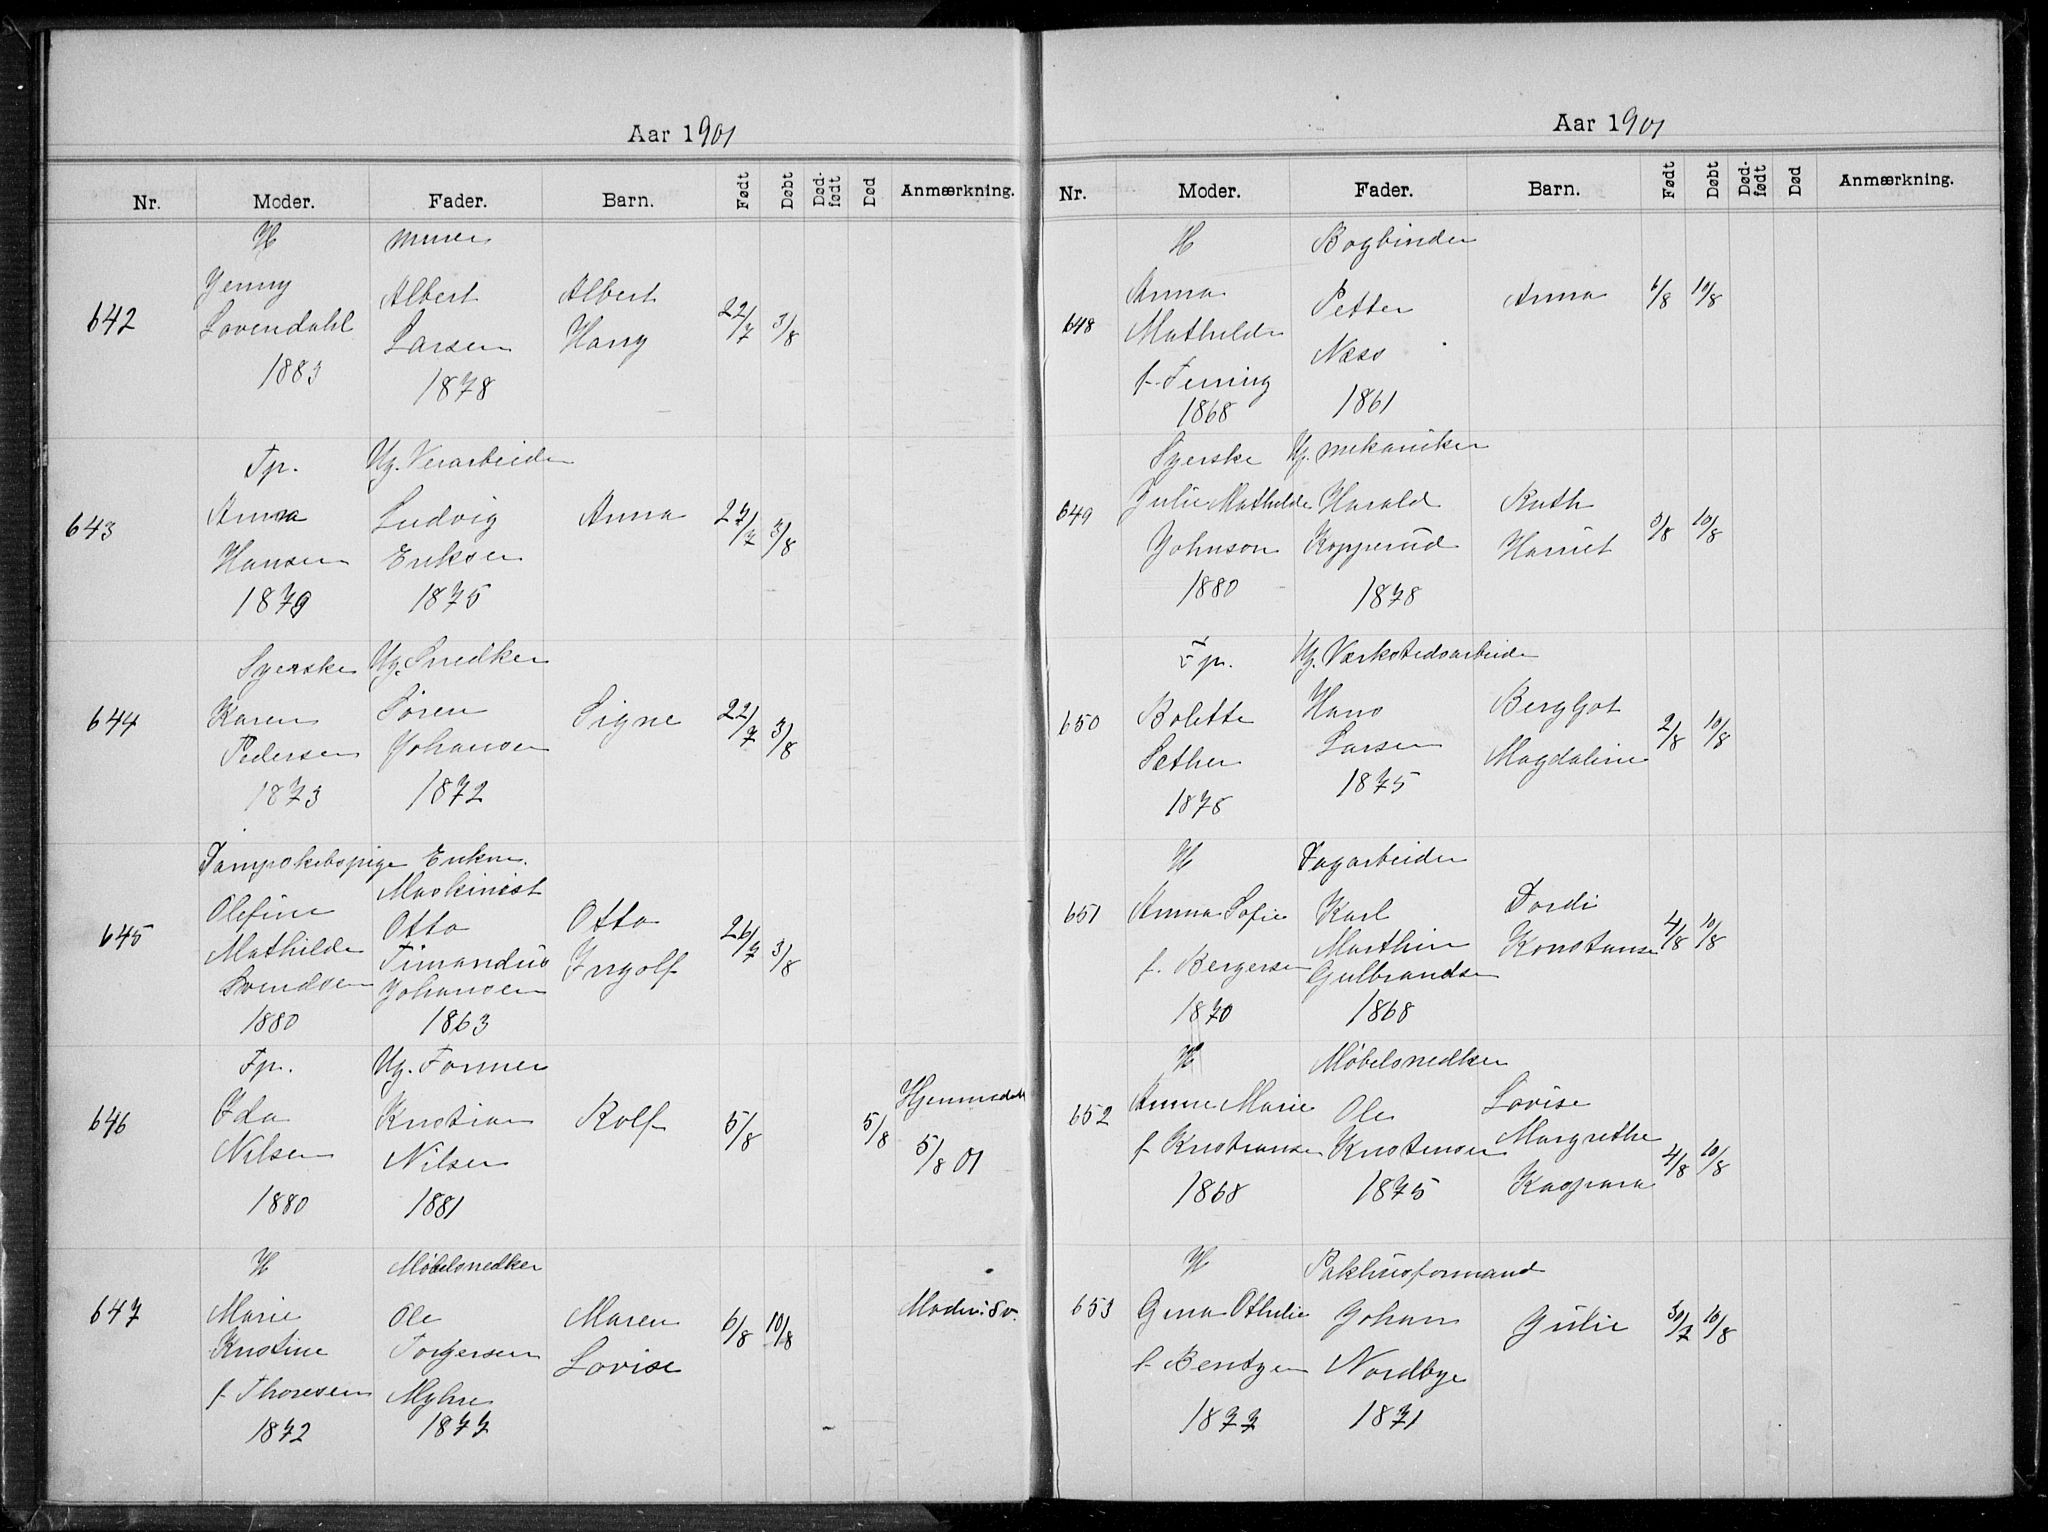 Aar 1901
Nr. Moder. Fader. Barn. Født Døbt Død-født Død Anmærkning.
H Murer
642 Jenny Albert Albert 22/7 3/8
Lovendahl Larsen Harry
1883 1878
Fp. Ug. Verarbeider
643 Anna Ludvig Anna 27/7 3/8
Hansen Eriksen
1879 1875
Syerske Ug. Snedker
644 Karen Søren Signe 22/7 3/8
Pedersen Johansen
1873 1872
Enkm.
Maskinist
645 Olefine Otto Otto 26/7 3/8
Mathilde Timandus Ingolf
Svendsen Johansen
1880 1863
Fp. Ug. Former
646 Ida Kristian Rolf 5/8 5/8 Hjemmedøbt
Nilsen Nilsen 5/8 01
1880 1881
H Møbelsnedker
647 Marie Ole Maren 6/8 10/8 Moder: Sv.
Kristine Torgersen Lovise
f. Thoresen Myhre
1872 1877
Aar 1901
Nr. Moder. Fader. Barn. Født Døbt Død-født Død Anmærkning.
H Bogbinder
648 Anna Petter Anna 6/8 10/8
Mathilde Næss
f. Ferring
1868 1861
Syerske Ug. mekaniker
649 Julie Mathilde Harald Ruth 3/8 10/8
Johnson Kopperud Harriet
1880 1878
Fp. Ug. Værkstedsarbeider
650 Bolette Hans Bergljot 2/8 10/8
Sæther Larsen Magdaline
1878 1875
H Dagarbeider
651 Anna Sofie Karl Tordi 4/8 10/8
f. Bergersen Marthin Konstanse
Gulbrandsen
1870 1868
H Møbelsnedker
652 Anne Marie Ole Lovise
f. Kristiansen Kristensen Margrethe 4/8 10/8
1868 1875 Kaspara
H Pakhusformand
653 Gina Othilie Johan Julie 30/7 10/8
f. Bentzen Nordbye
1877 1871